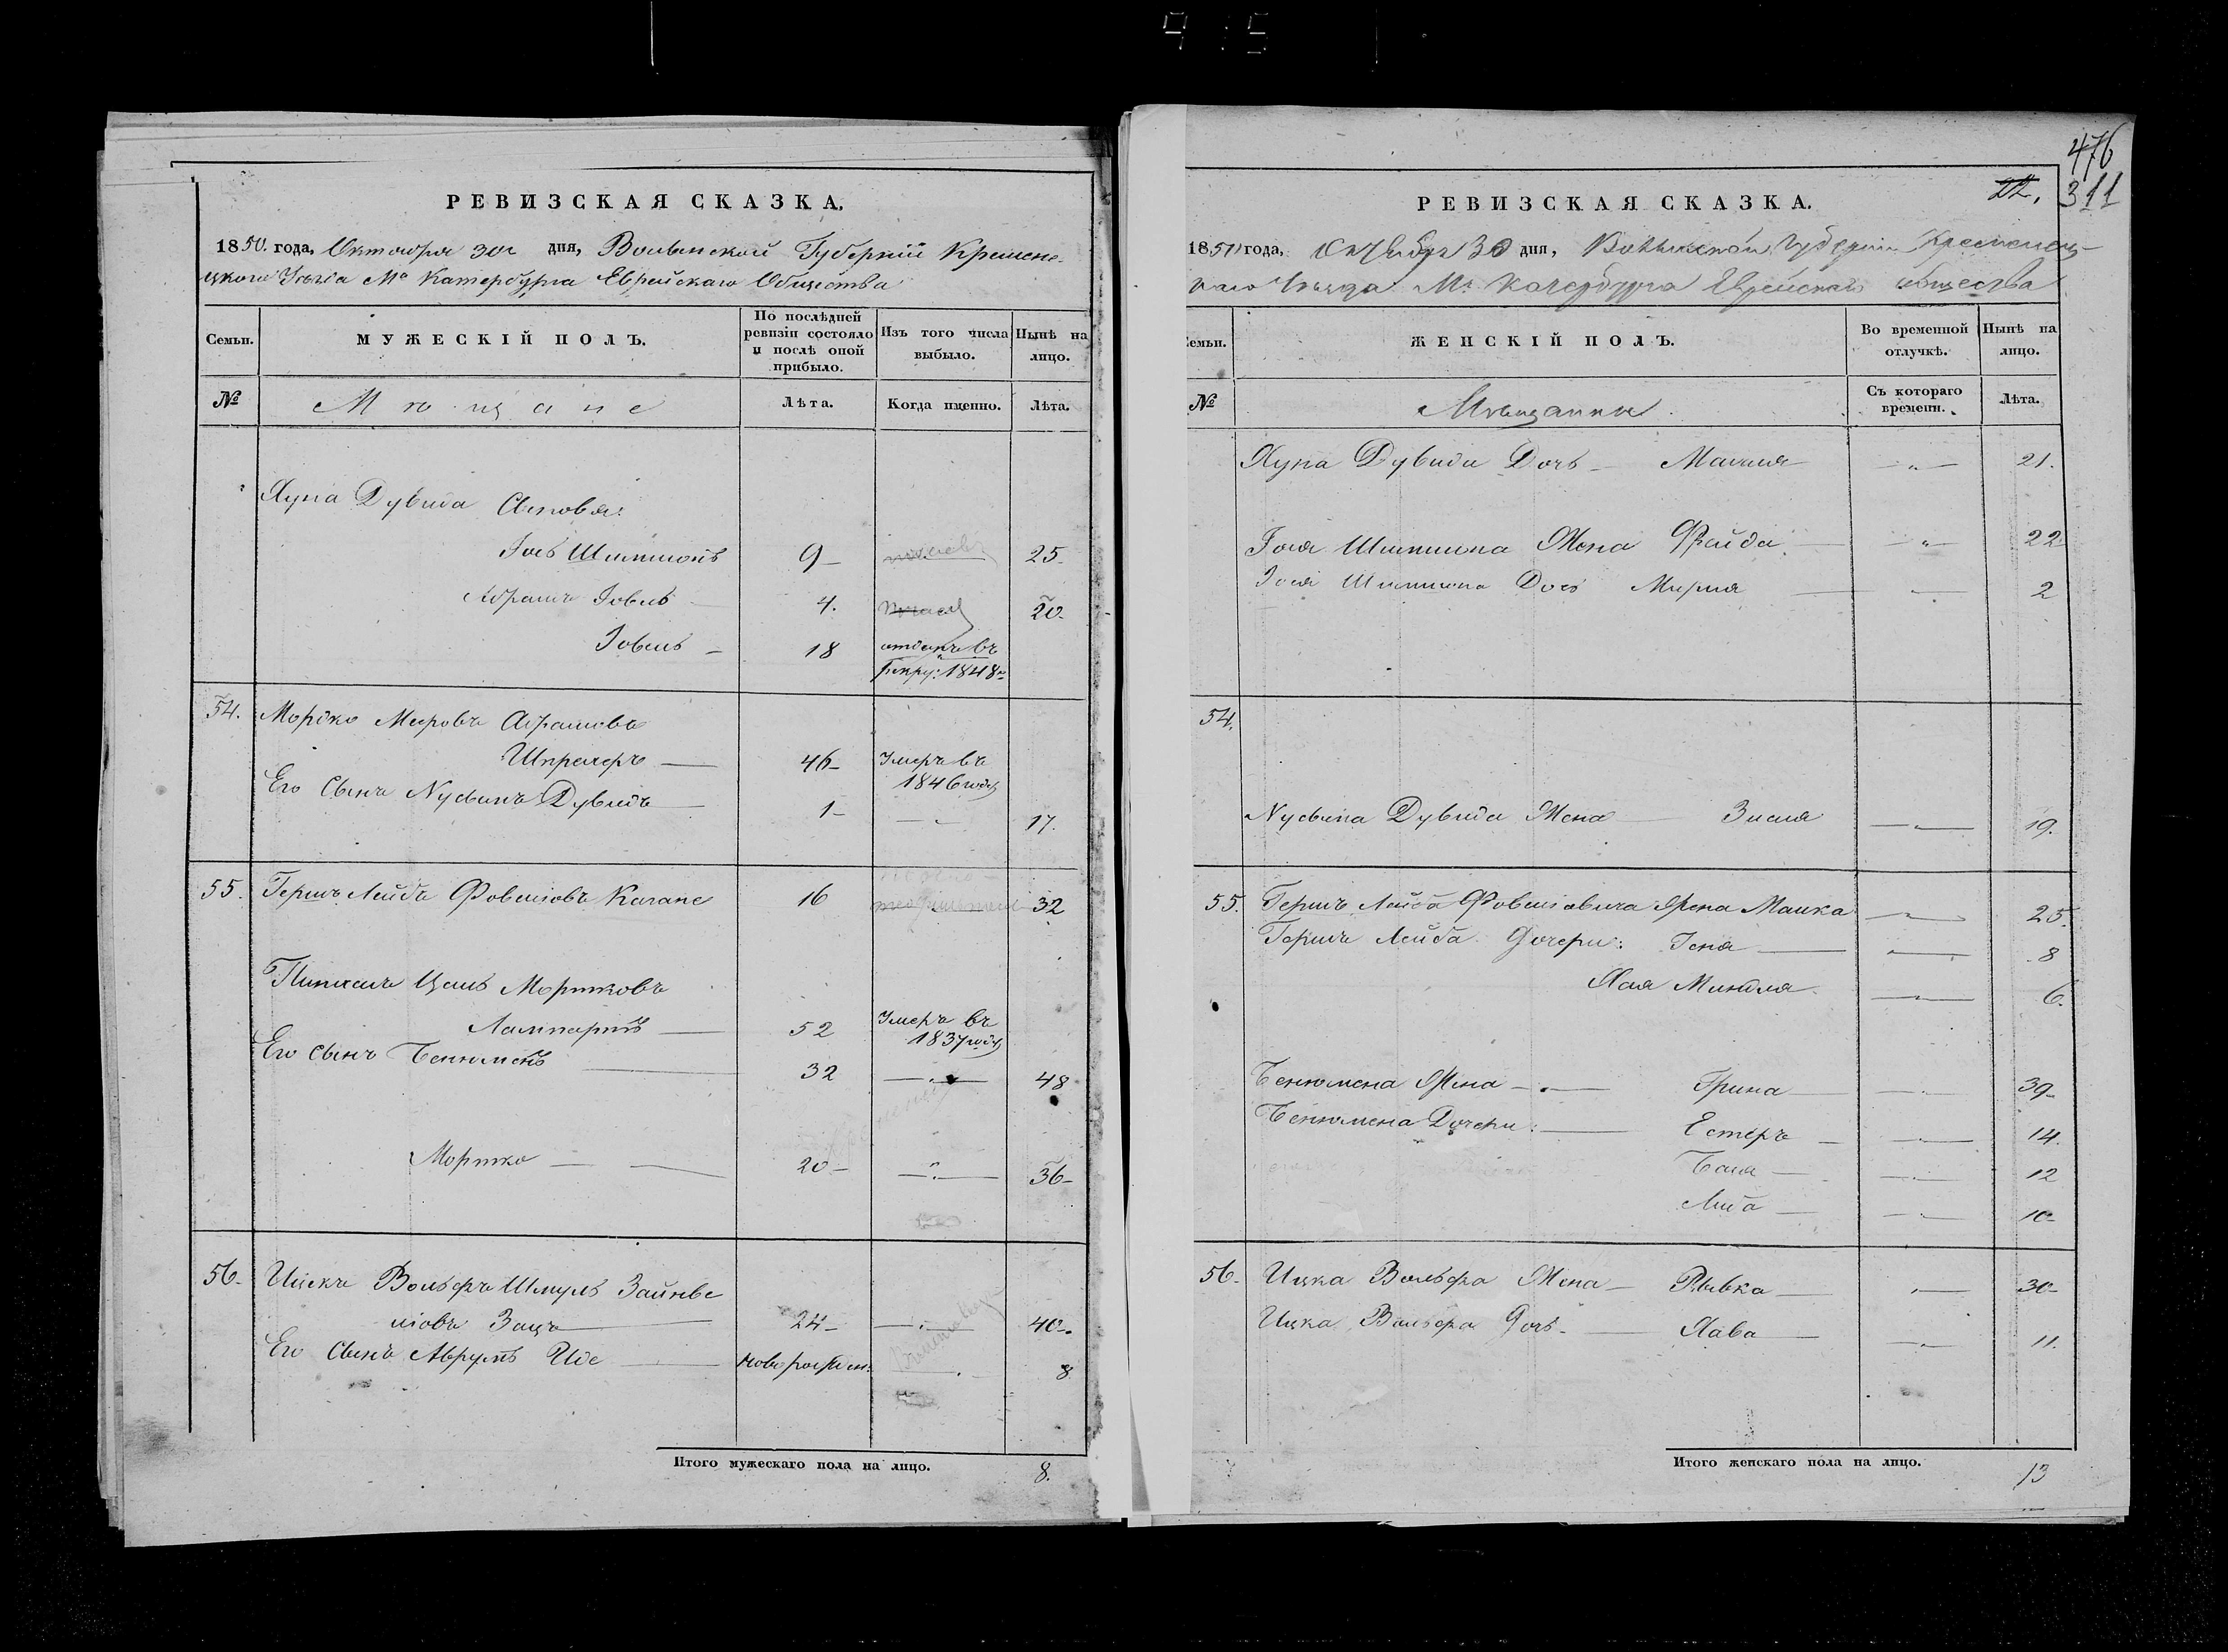 РЕВИЗСКАЯ СКАЗКА.
1850. года, Октября 30го дня, Волынской Губернiй Кремене-
цкого Уѣзда Мᵃ Катербурга Еврейскаго Общества
Семьи.
МУЖЕСКІЙ ПОЛЪ.
По послѣдней ревизіи состояло и послѣ оной прибыло.
Изъ того числа выбыло.
Нынѣ на лицо.
№
Мѣщане
Лѣта.
Когда именно.
Лѣта.
Хуна Дувида Сыновья:
Іось Шимшонъ 9 25
Абрамъ Іовель 4. 20
Іовель 18 отданъ въ
Рекру: 1848го
54. Моріко Меровъ Абрамовъ
Шпрехеръ 46 Умеръ въ
1846 году
Его Сынъ Нусынъ Дувидъ 1 17.
55. Гершъ Лейбъ Фовеліовъ Кагане 16 32
Пинхасъ Цаль Моршковъ
Лампартъ 52 Умеръ въ
1837 году
Его Сынъ Бенюменъ 32 48
Моршко 20 36
56. Ицекъ Вольфъ Шмуль Зайнве
ліовъ Зацъ 24 40
Его Сынъ Аврумъ Иде новорожден: 8
Итого мужескаго пола на лицо. 8.
476
22.
311
РЕВИЗСКАЯ СКАЗКА.
1850 года, Октября 30 дня, Волынской Губернiи Кременец-
каго Уѣзда Мᵃ Катербурга Еврейскаго общества
Семьи.
ЖЕНСКІЙ ПОЛЪ.
Во временной отлучкѣ.
Нынѣ на лицо.
№
Мѣщанки
Съ котораго времени.
Лѣта.
Хуна Дувида Дочь Малля 21.
Іося Шимшона Жена Фрейда 22
Іося Шимшона Дочь Мирля 2
54.
Нусына Дувида Жена Зисля 19.
55. Гершъ Лейба Фовеліовича Жена Малка 25.
Гершъ Лейба Дочери: Геня 8
Хая Минтля 6.
Бенюмена Жена Грина 39
Бенюмена Дочери: Естеръ 14.
Бася 12
Либа 10
56. Ицка Вольфа Жена Рывка 30
Ицка Вольфа Дочь Хава 11.
Итого женскаго пола на лицо. 13